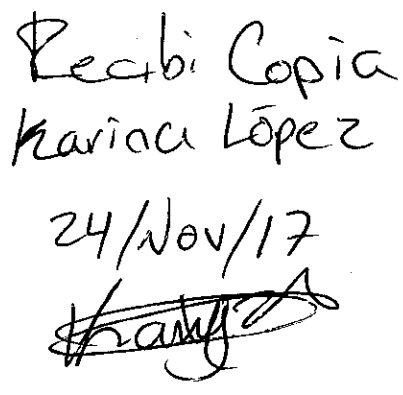 Recibi Copia
Karina López
24/Nov/17